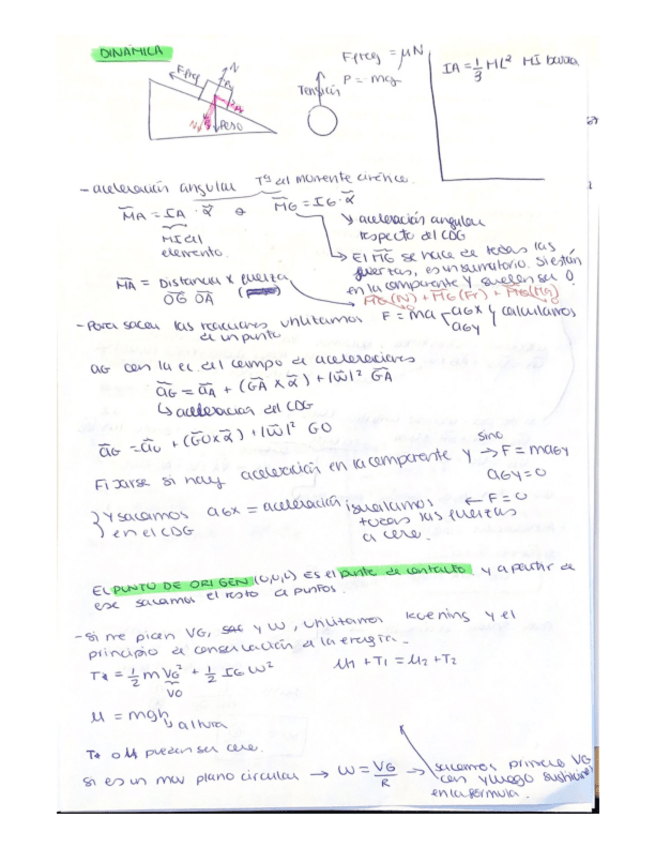 DINÁMICA
Ffreg = μN
P = mg
IA = 1/3 ML² MI barra
Freg
N
Px
Peso
Tensión
- aceleración angular Tª del momento cinético.
M̄A = IA · ᾱ o M̄G = IG · ᾱ
MI del elemento.
↳ aceleración angular respecto del CDG
→ El M̄G se hace de todas las
fuerzas, es un sumatorio. Si están
en la componente Y suelen ser 0.
M̄A = Distancia x fuerza
OG OA
M̄G(N) + M̄G(Fr) + M̄G(Mg)
- Para sacar las reacciones utilizamos F = ma aGx y calculamos
de un punto aGy
aG con la ec. del campo de aceleraciones
āG = āA + (ḠA x ᾱ) + |ω̄|² ḠA
↳ aceleración del CDG
āG = āO + (ḠO x ᾱ) + |ω̄|² GO
Fijarse si hay aceleración en la componente Y → F = maGy
sino
aGy = 0
← F = 0
} Y sacamos aGx = aceleración igualamos
en el CDG todas las fuerzas
a cero.
El PUNTO DE ORIGEN (0,0,0) ES el punto de contacto y a partir de
ese sacamos el resto de puntos.
- Si me piden VG, y ω, utilizamos koening y el
principio de conservación de la energía.
T = 1/2 m VG² + 1/2 IG ω² μ1 + T1 = μ2 + T2
VO
μ = mgh
↳ altura
T o μ pueden ser cero.
si es un mov plano circular → ω = VG/R → sacamos primero VG
con y luego
en la fórmula.